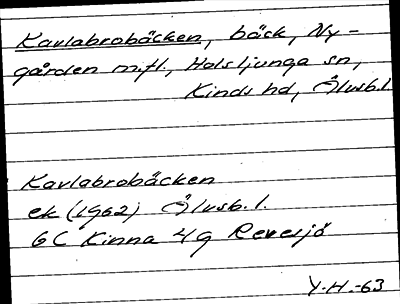 Kavlabrobäcken, bäck, Ny-
gården m.fl., Holsljunga sn,
Kinds hd, Älvsb.l.
Kavlabrobäcken
ek (1962) Älvsb.l.
6C Kinna 4g Revesjö
Y.H.-63